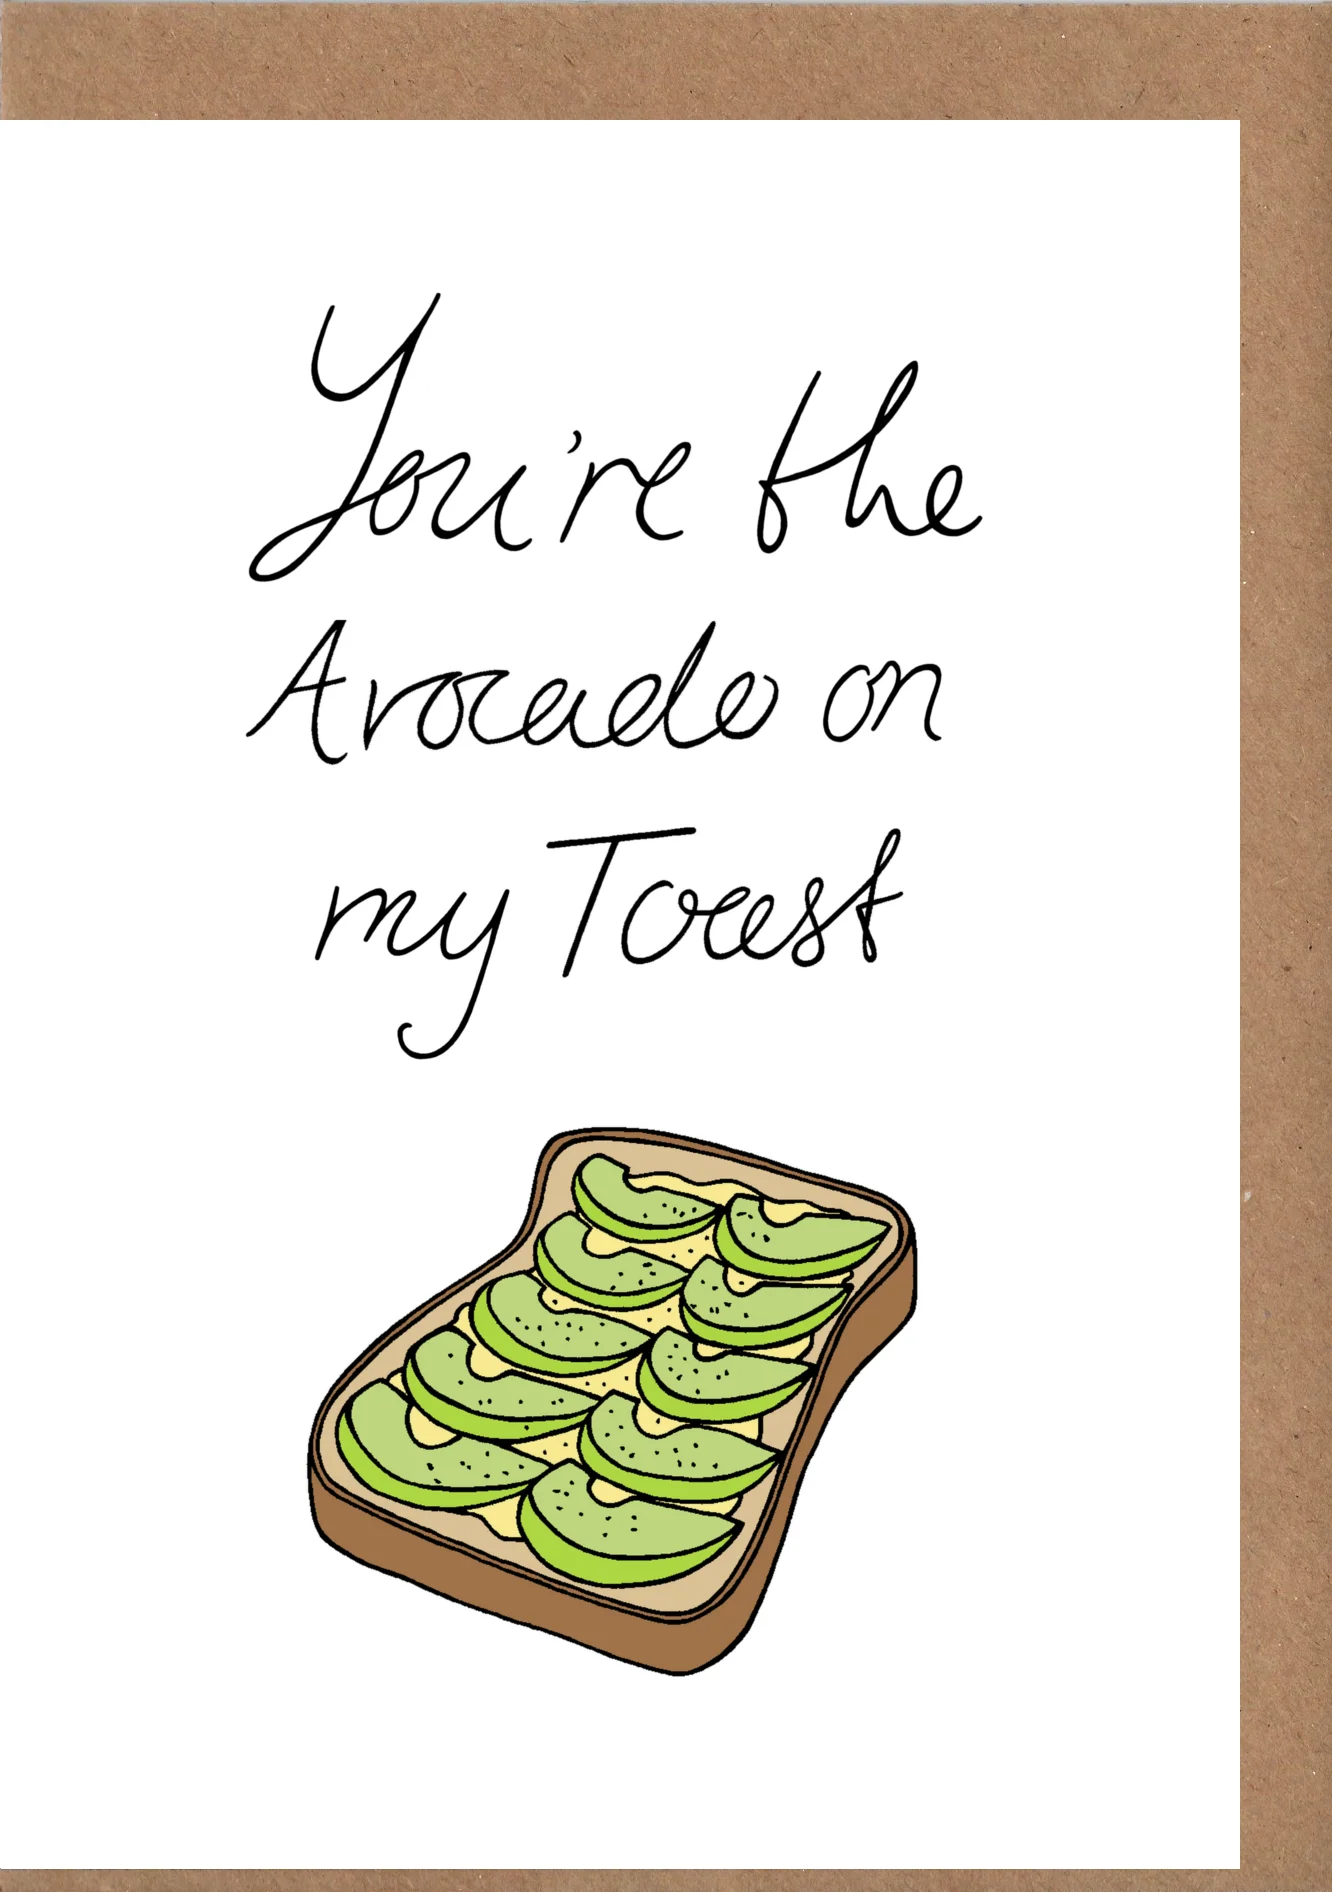 You're the
Avocado on
my Toast